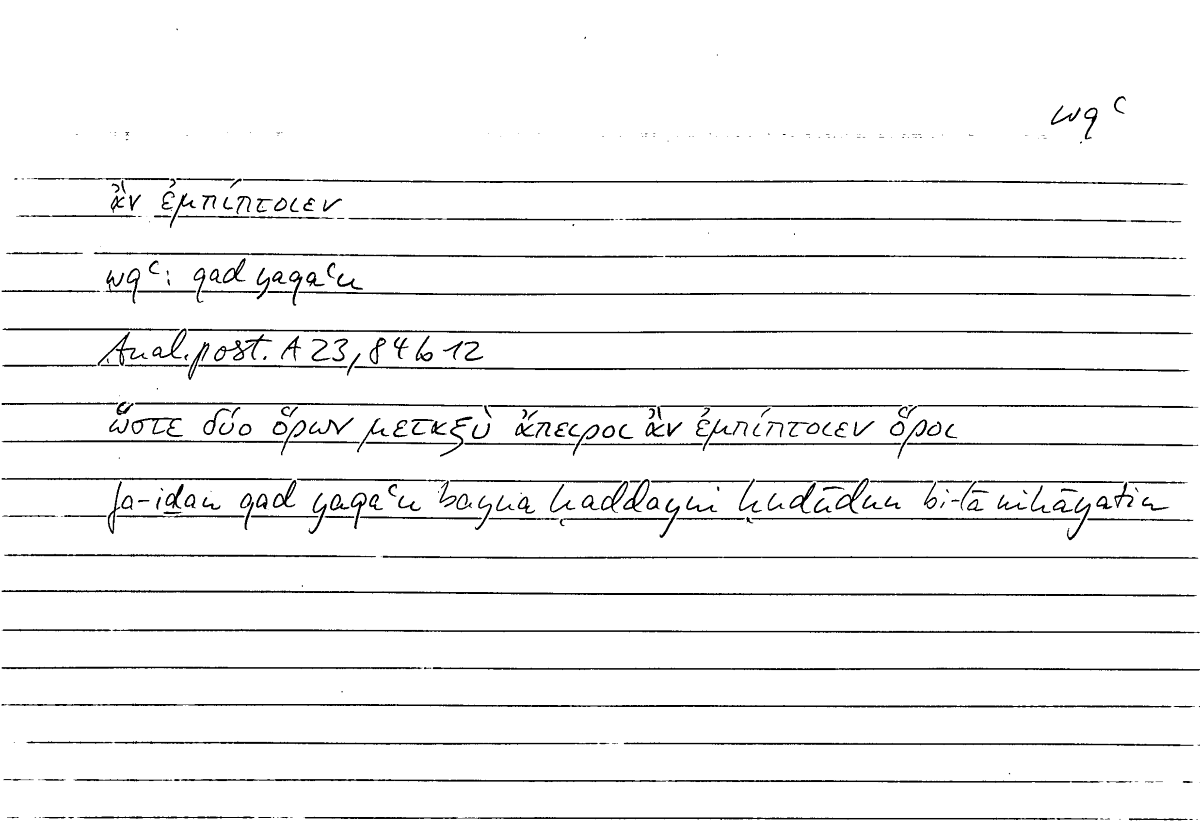 wqʿ
ἂν ἐμπίπτοιεν
wqʿ: qad yaqaʿu
Anal. post. A 23, 84 b 12
ὥστε δύο ὅρων μεταξὺ ἄπειροι ἂν ἐμπίπτοιεν ὅροι
fa-iḏan qad yaqaʿu bayna ḥaddayni ḥudūdun bi-lā nihāyatin